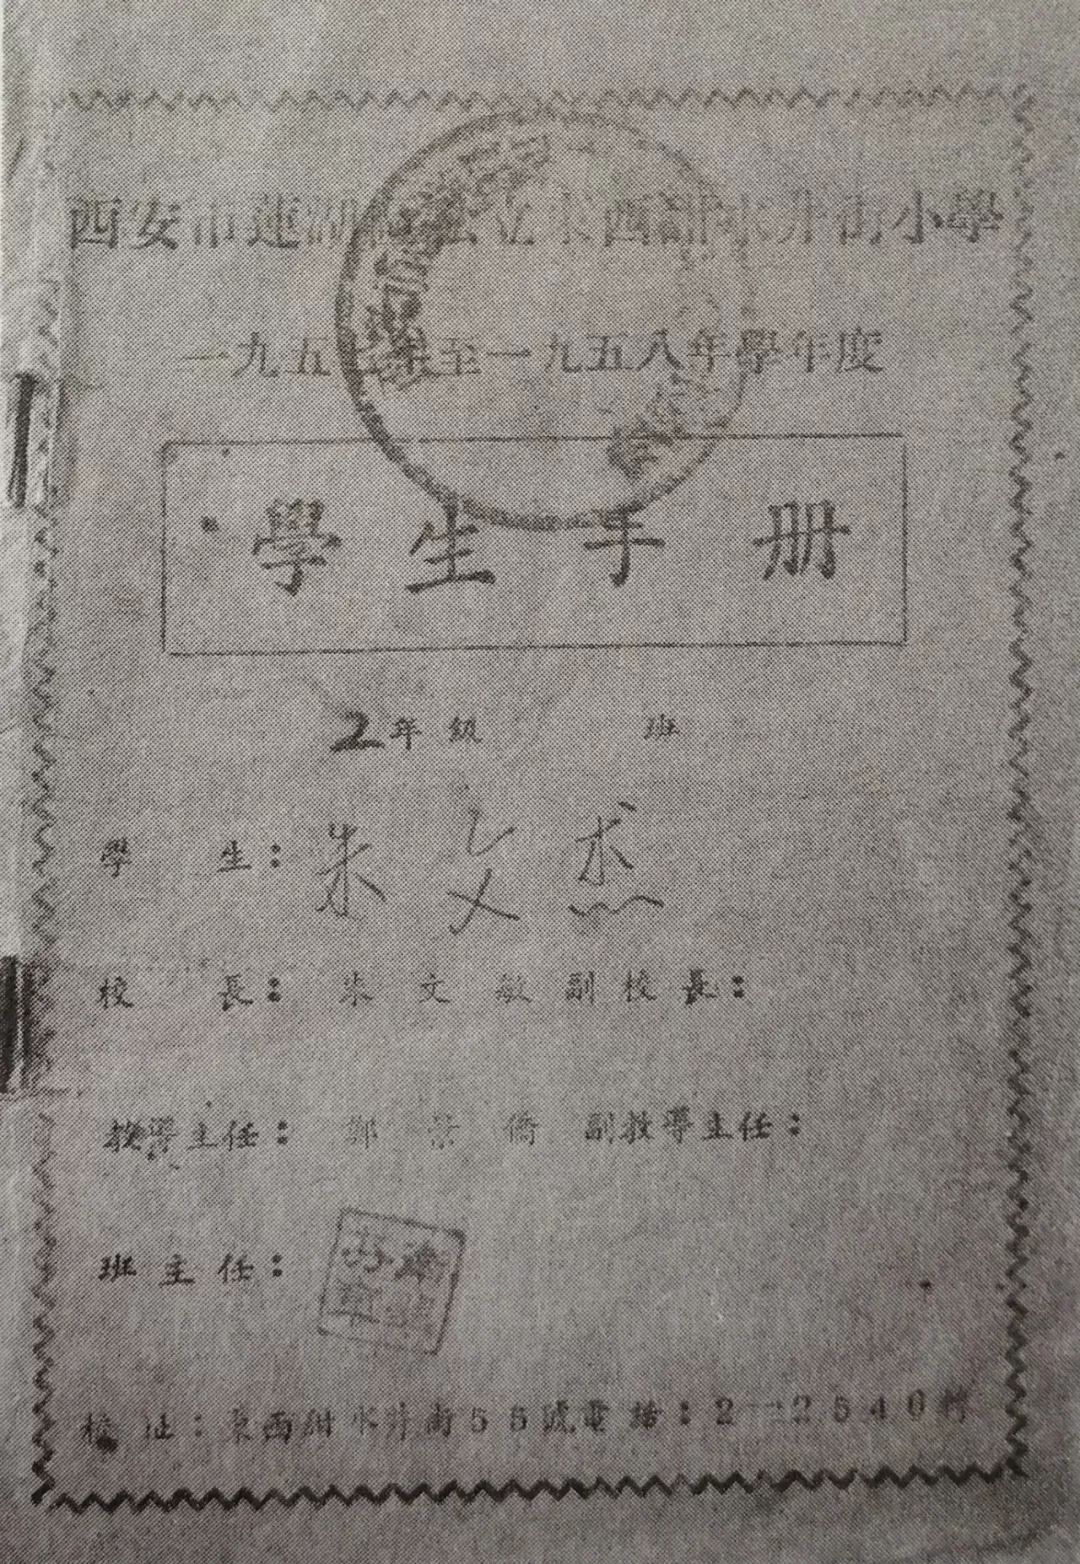 西安市蓮湖區私立東西甜水井街小學
一九五七年至一九五八年學年度
學生手册
2年級 班
學生：朱文杰
校長：朱文敏副校長：
教導主任：鄭景僑 副教導主任：
班主任：
校址：東西甜水井街55號電話：2—2540轉